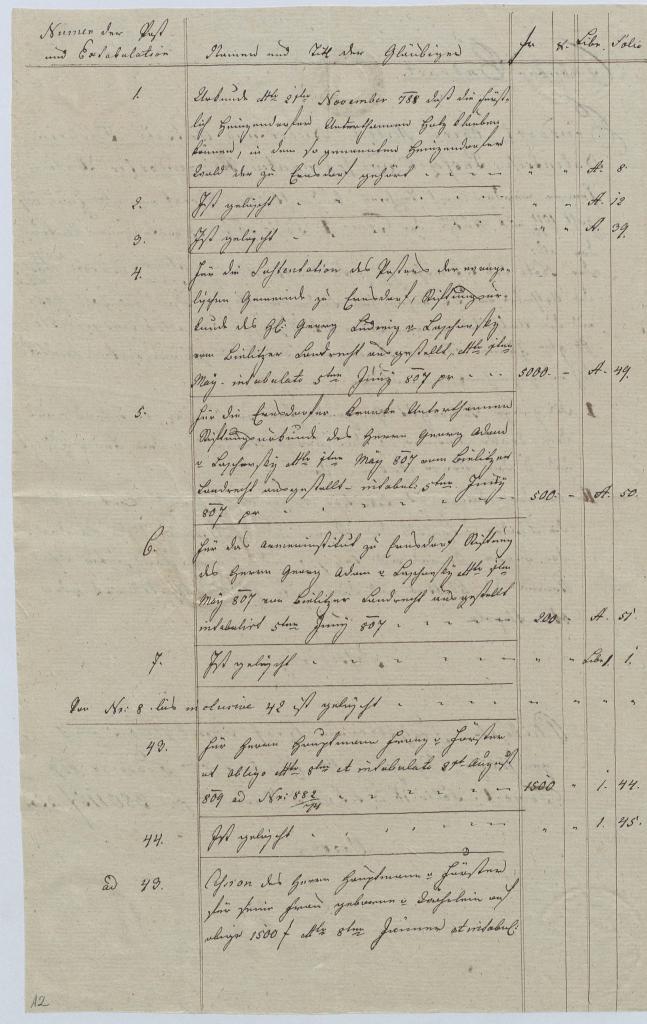 Numer der Post und Extabulation Namen und Titl der Gläubiger fr x. Libr. Folio
1. Urkunde dto 21ten November 788 daß die fürst-
lich Heinzendorfer Unterthanen Holz klauben
können, in dem so genannten Heinzendorfer
Wald der zu Ernsdorf gehört " " A. 8
2. Ist gelöscht " " A. 12
3. Ist gelöscht " " A. 39
4. Für die Sustentation des Pastors der evange-
lischen Gemeinde zu Ernsdorf, Stiftungsur-
kunde des Hl: Georg Ludwig v Laschowsky
vom Bielitzer Landrecht ausgestellt, dto 1ten
May - intabulato 5ten Juny 807 pr 5000 - A. 49.
5. Für die Ernsdorfer Kranke Unterthanen
Stiftungsurkunde des Herrn Georg Adam
v Laschowsky dto 1ten May 807 vom Bielitzer
Landrecht ausgestellt - intabul: 5ten Juny
807 pr 500 - A. 50.
6. Für das Armeninstitut zu Ernsdorf Stiftung
des Herrn Georg Adam v Laschowsky dto 1ten
May 807 vom Bielitzer Landrecht ausgestellt
intabulirt 5ten Juny 807 200 - A. 51
7. Ist gelöscht " " Libr 1. 1.
Von Nr: 8 bis inclusive 42 ist gelöscht " " " "
43. Für Herrn Hauptmann Franz v Förster
ut obligo dto 8ten et intabulato 8t August
809 ad Nr: 882 1500 " 1. 44.
44. Ist gelöscht " " 1. 45.
ad 43. Cession des Herrn Hauptmann v Förster
für seine Frau geborene v
obige 1500 f dto 8ten Jänner et intabul:
12